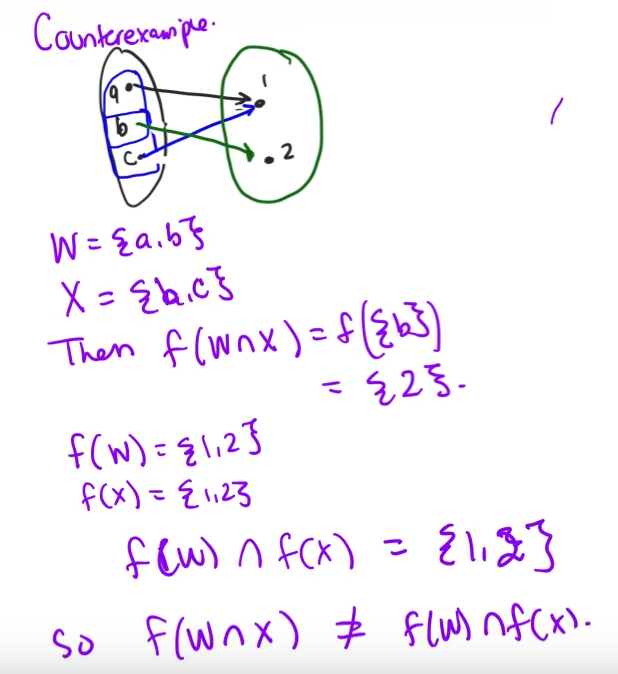 Counterexample.
a 1
b
c 2
W = {a,b}
X = {b,c}
Then f(W∩X) = f({b})
= {2}.
f(W) = {1,2}
f(X) = {1,2}
f(W) ∩ f(X) = {1,2}
So f(W∩X) ≠ f(W) ∩ f(X).